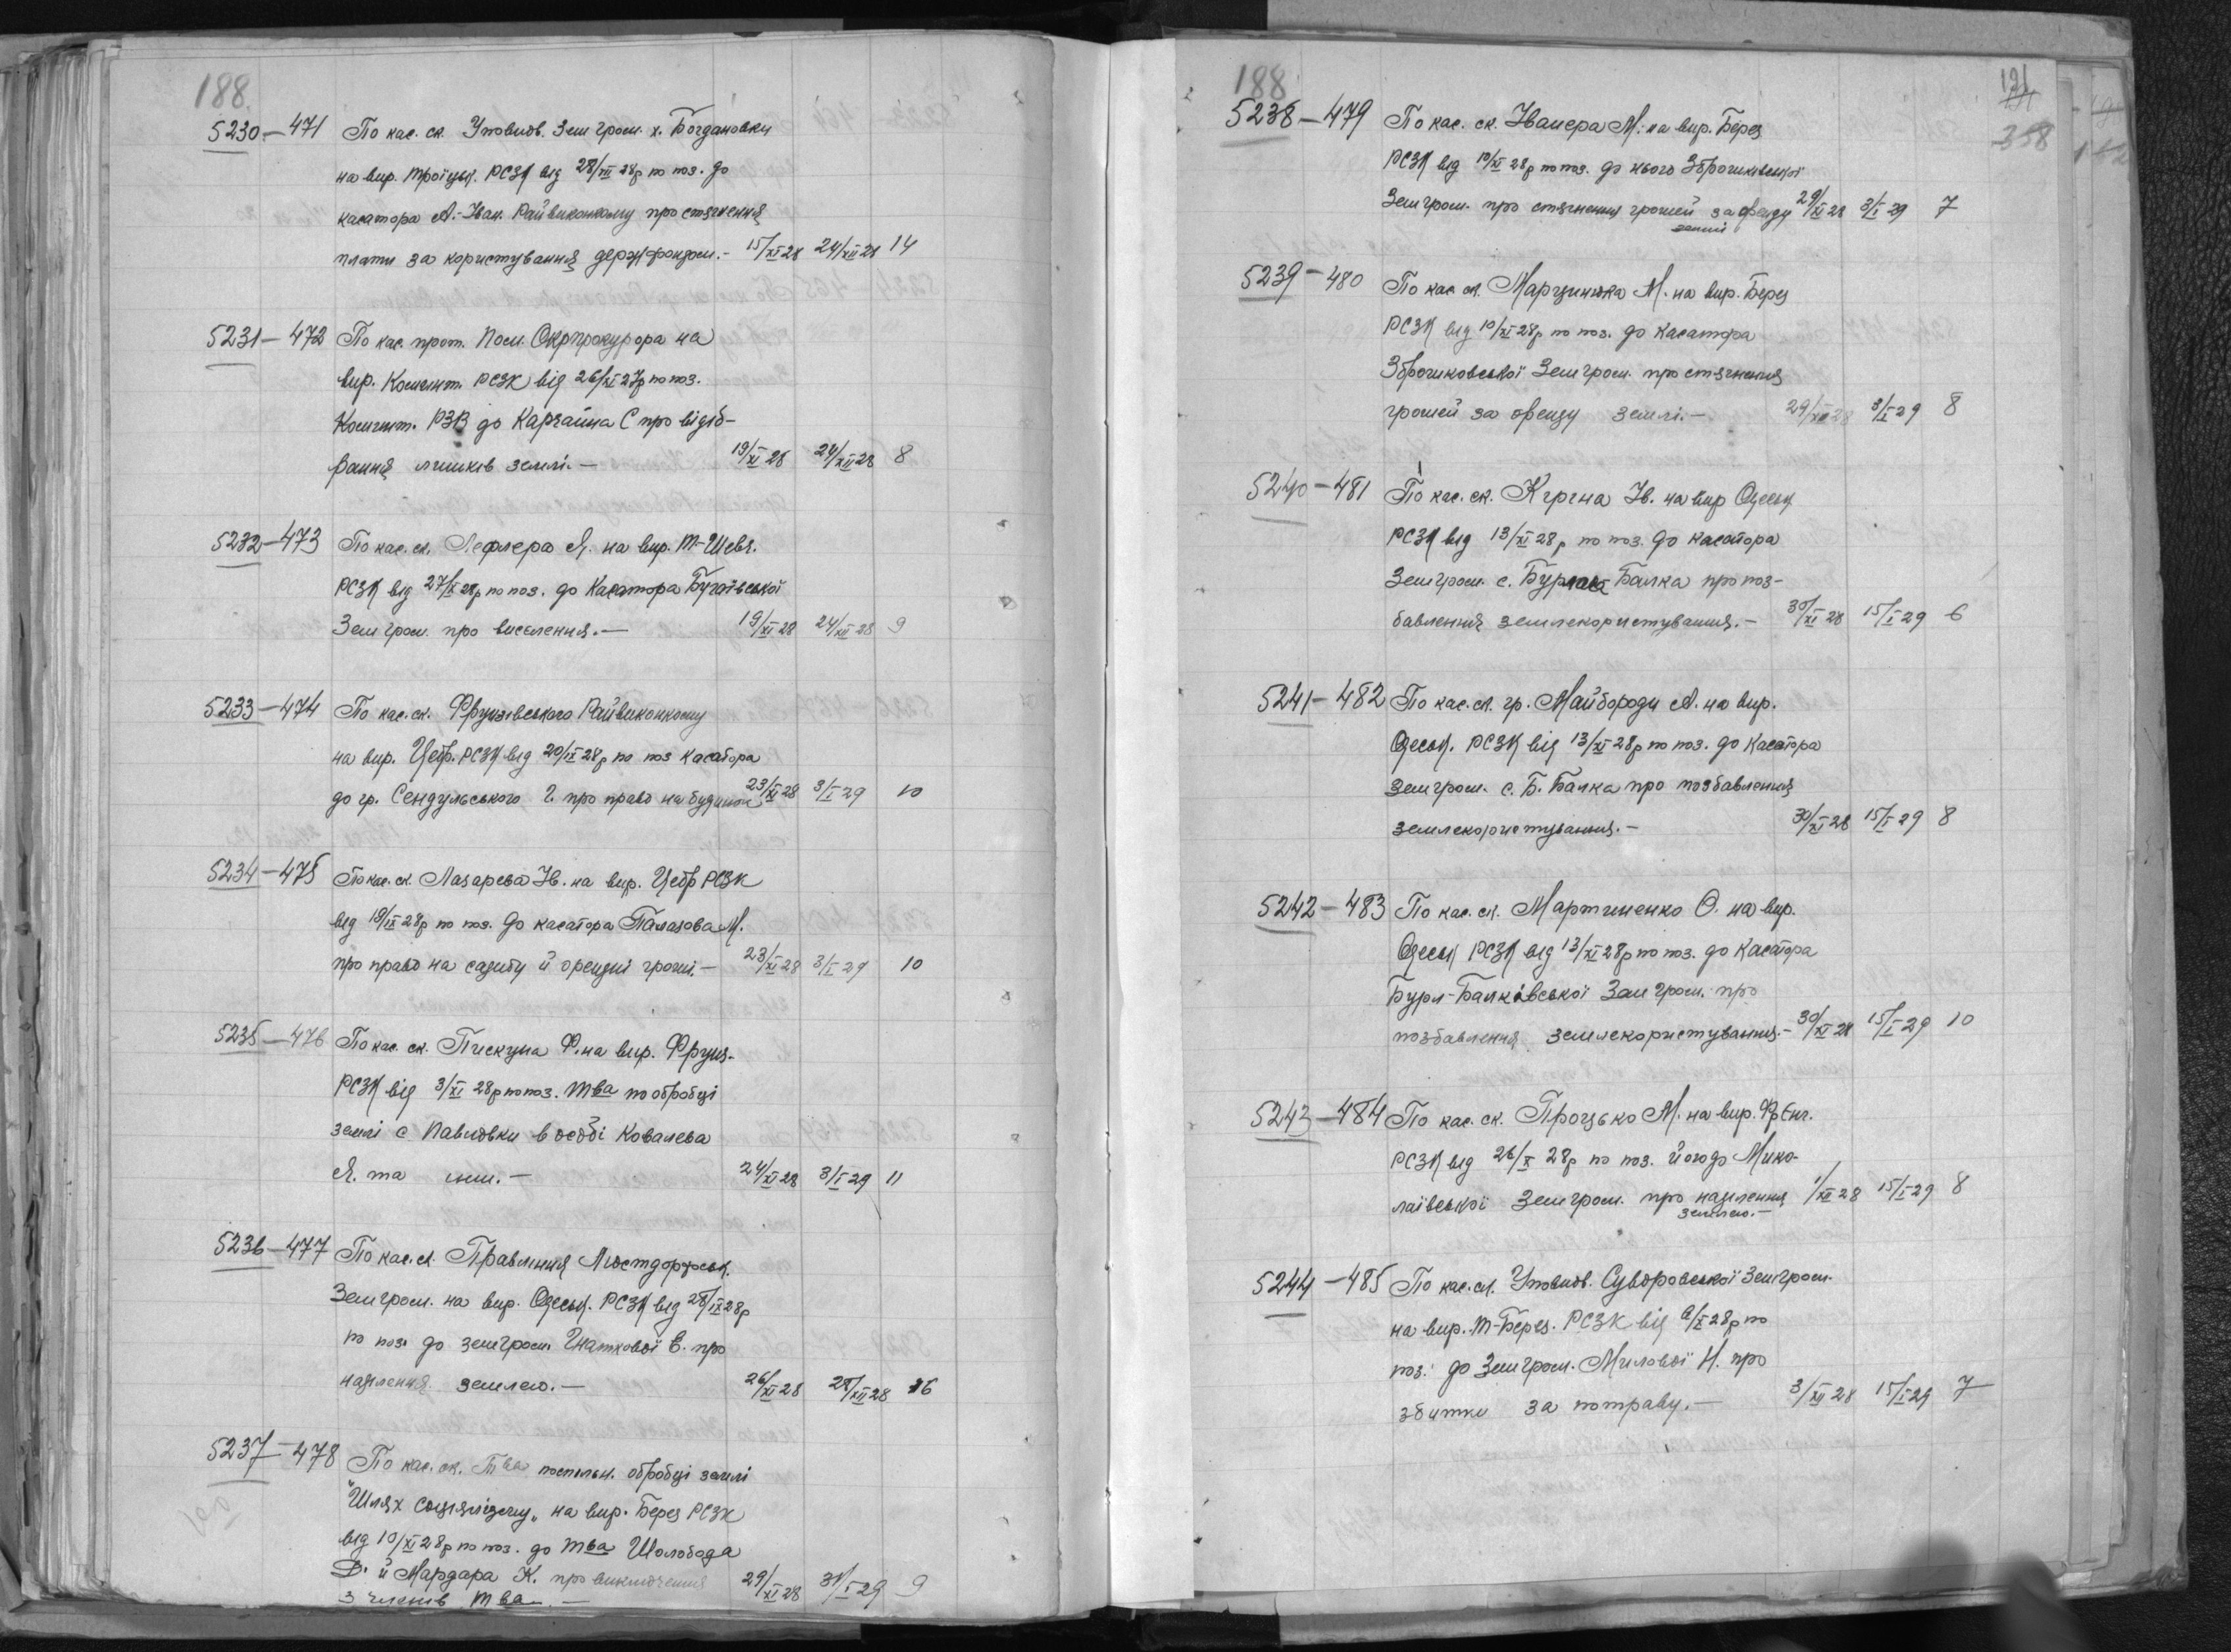 188
5230 — 471 По кас. ск. Уповнов. Зем гром. х. Богдановки
на вир. Троїцьк. РСЗК від 28/VII 28р по поз. до
касатора А.-Іван. Райвиконкому про стягнення
плати за користування держфондом. - 15/XI 28 24/XII 28 14
5231 — 472 По кас. прот. Пом. Окрпрокурора на
вир. Комінт. РСЗК від 26/XI 27р по поз.
Комінт. РЗВ до Карчаина С про відіб-
рання лишків землі. — 19/XI 28 24/XII 28 8
5232 — 473 По кас. ск. Лефлера Я. на вир. Т-Шевч.
РСЗК від 27/X 28р по поз. до Касатора Бугаївської
Земгром. про виселення. — 19/XI 28 24/XII 28 9
5233 — 474 По кас. ск. Фрунзівського Райвиконкому
на вир. Цебр. РСЗК від 20/IX 28р по поз касатора
до гр. Сендульського Г. про право на будинок 23/XI 28 3/I 29 10
5234 — 475 По кас. ск. Лазарєва Ів. на вир. Цебр РСЗК
від 19/IX 28р по поз. до касатора Палазова М.
про право на садибу й орендні гроші. — 23/XI 28 3/I 29 10
5235 — 476 По кас. ск. Пискуна Ф. на вир. Фрунз.
РСЗК від 3/XI 28р по поз. Тва по обробці
землі с Павловки в особі Ковалева
Я. та інш. — 24/XI 28 3/I 29 11
5236 — 477 По кас. ск. Правління Люстдорфськ.
Земгром. на вир. Одеськ. РСЗК від 28/IX 28р
по поз. до земгром. Гнаткової Є. про
наділення землею. — 26/XI 28 27/XII 28 16
5237 — 478 По кас. ск. Тва поспільн. обробці землі
"Шлях Соціялізму" на вир. Берез РСЗК
від 10/XI 28р по поз. до Тва Шолобода
Д. й Мардара К. про виключення 29/XI 28 31/I 29 9
з членів Тва. —
188
121
358
5238 — 479 По кас. ск. Іванера М. на вир. Берез
РСЗК від 10/XI 28р по поз. до нього Зброшківської
Земгром. про стягнення грошей за оренду 29/XI 28 3/I 29 7
землі
5239 — 480 По кас ск. Марцинюка М. на вир. Берез
РСЗК від 10/XI 28р по поз. до касатора
Зброшковської Земгром. про стягнення
грошей за оренду землі. — 29/XI 28 3/I 29 8
5240 — 481 По кас. ск. Кіріна Ів. на вир Одеськ
РСЗК від 13/XI 28р по поз. до касатора
Земгром. с. Бурлача Балка про поз-
бавлення землекористування. — 30/XI 28 15/I 29 6
5241 — 482 По кас. ск. гр. Майбороди А. на вир.
Одеськ. РСЗК від 13/XI 28р по поз. до касатора
Земгром. с. Б. Балка про позбавлення
землекористування. — 30/XI 28 15/I 29 8
5242 — 483 По кас. ск. Мартиненко О. на вир.
Одеськ РСЗК від 13/XI 28р по поз. до касатора
Бурл-Балківської Зем гром. про
позбавлення землекористування. - 30/XI 28 15/I 29 10
5243 — 484 По кас. ск. Процько М. на вир. Фр Енг.
РСЗК від 26/X 28р по поз. його до Мико-
лаївської Земгром. про наділення 1/XII 28 15/I 29 8
землею. —
5244 — 485 По кас. ск. Уповнов. Суворовської Земгром.
на вир. Т-Берез. РСЗК від 9/X 28р по
поз. до Земгром. Милової Н. про
збитки за потраву. — 3/XII 28 15/I 29 7